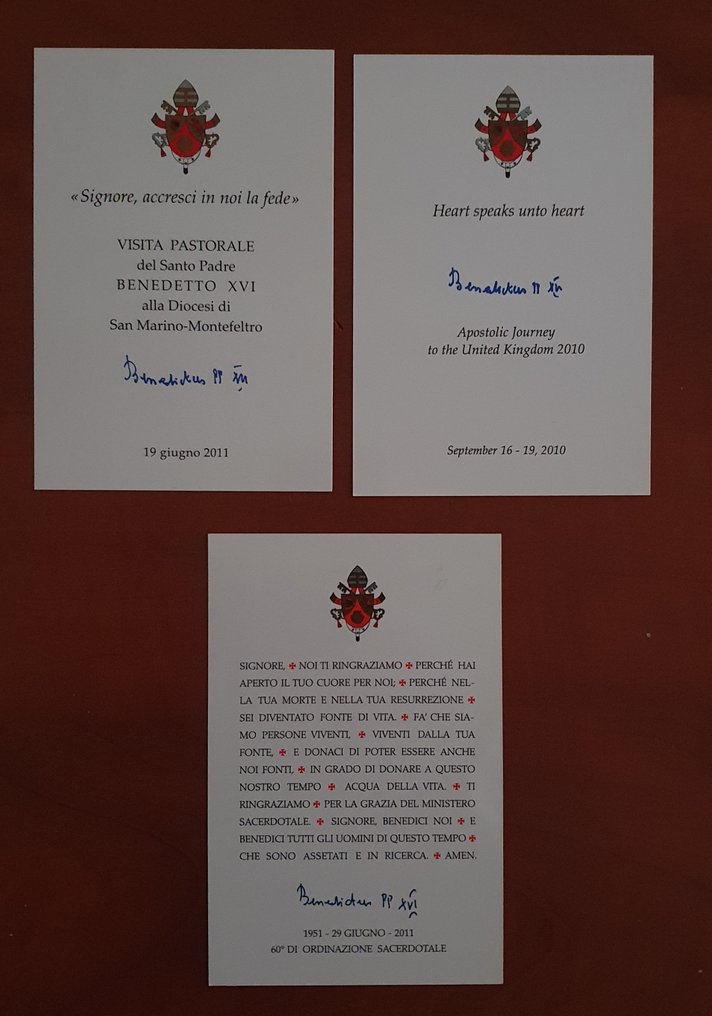 «Signore, accresci in noi la fede»
VISITA PASTORALE
del Santo Padre
BENEDETTO XVI
alla Diocesi di
San Marino-Montefeltro
Benedictus PP XVI
19 giugno 2011
Heart speaks unto heart
Benedictus PP XVI
Apostolic Journey
to the United Kingdom 2010
September 16 - 19, 2010
SIGNORE, ✠ NOI TI RINGRAZIAMO ✠ PERCHÉ HAI
APERTO IL TUO CUORE PER NOI; ✠ PERCHÉ NEL-
LA TUA MORTE E NELLA TUA RESURREZIONE ✠
SEI DIVENTATO FONTE DI VITA. ✠ FA' CHE SIA-
MO PERSONE VIVENTI, ✠ VIVENTI DALLA TUA
FONTE, ✠ E DONACI DI POTER ESSERE ANCHE
NOI FONTI, ✠ IN GRADO DI DONARE A QUESTO
NOSTRO TEMPO ✠ ACQUA DELLA VITA. ✠ TI
RINGRAZIAMO ✠ PER LA GRAZIA DEL MINISTERO
SACERDOTALE. ✠ SIGNORE, BENEDICI NOI ✠ E
BENEDICI TUTTI GLI UOMINI DI QUESTO TEMPO ✠
CHE SONO ASSETATI E IN RICERCA. ✠ AMEN.
Benedictus PP XVI
1951 - 29 GIUGNO - 2011
60° DI ORDINAZIONE SACERDOTALE